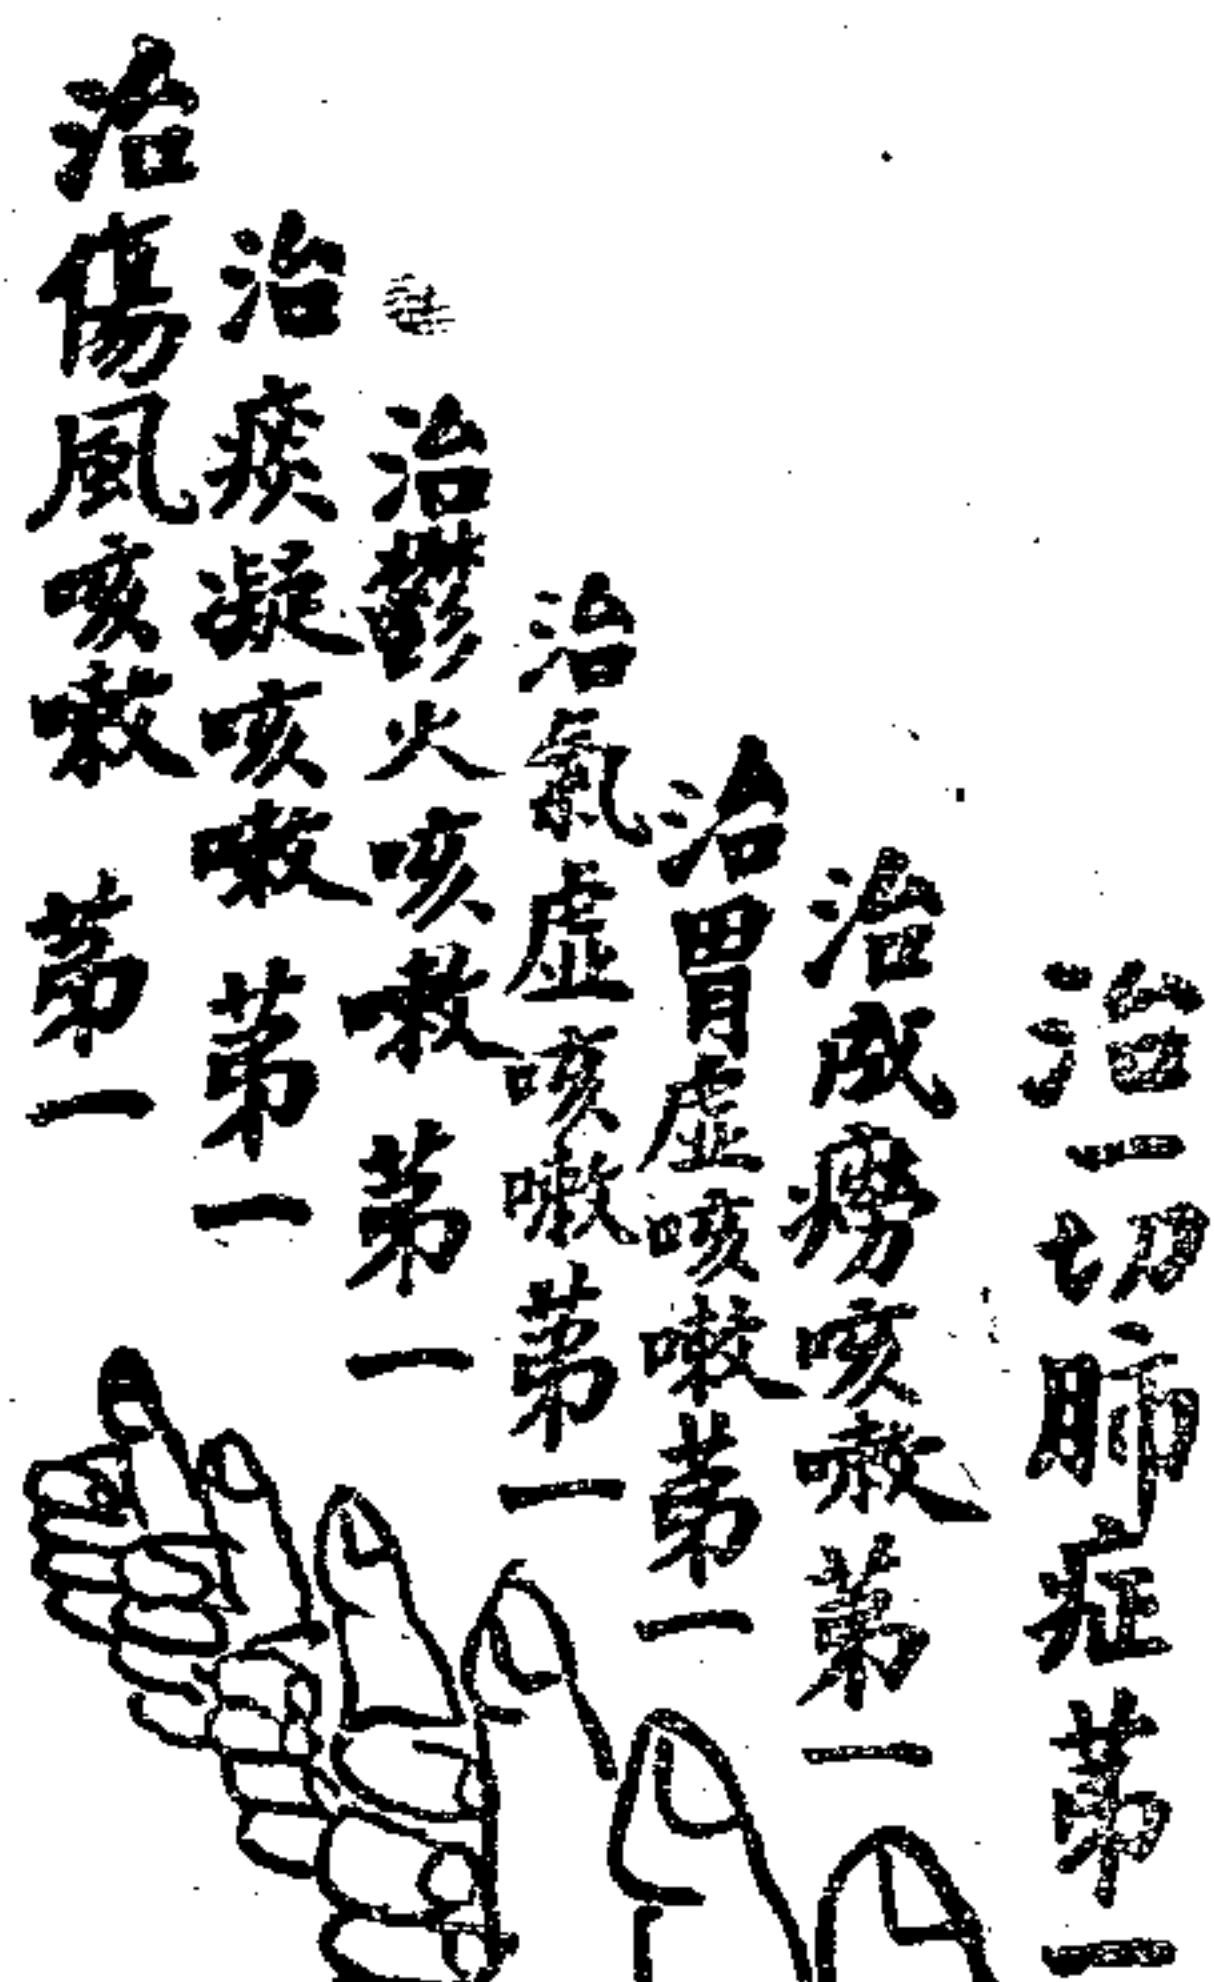 治一切肺症第一
治成癆咳嗽第一
治胃虛咳嗽第一
治氣虛咳嗽第一
治鬱火咳嗽第一
治痰凝咳嗽第一
治傷風咳嗽第一